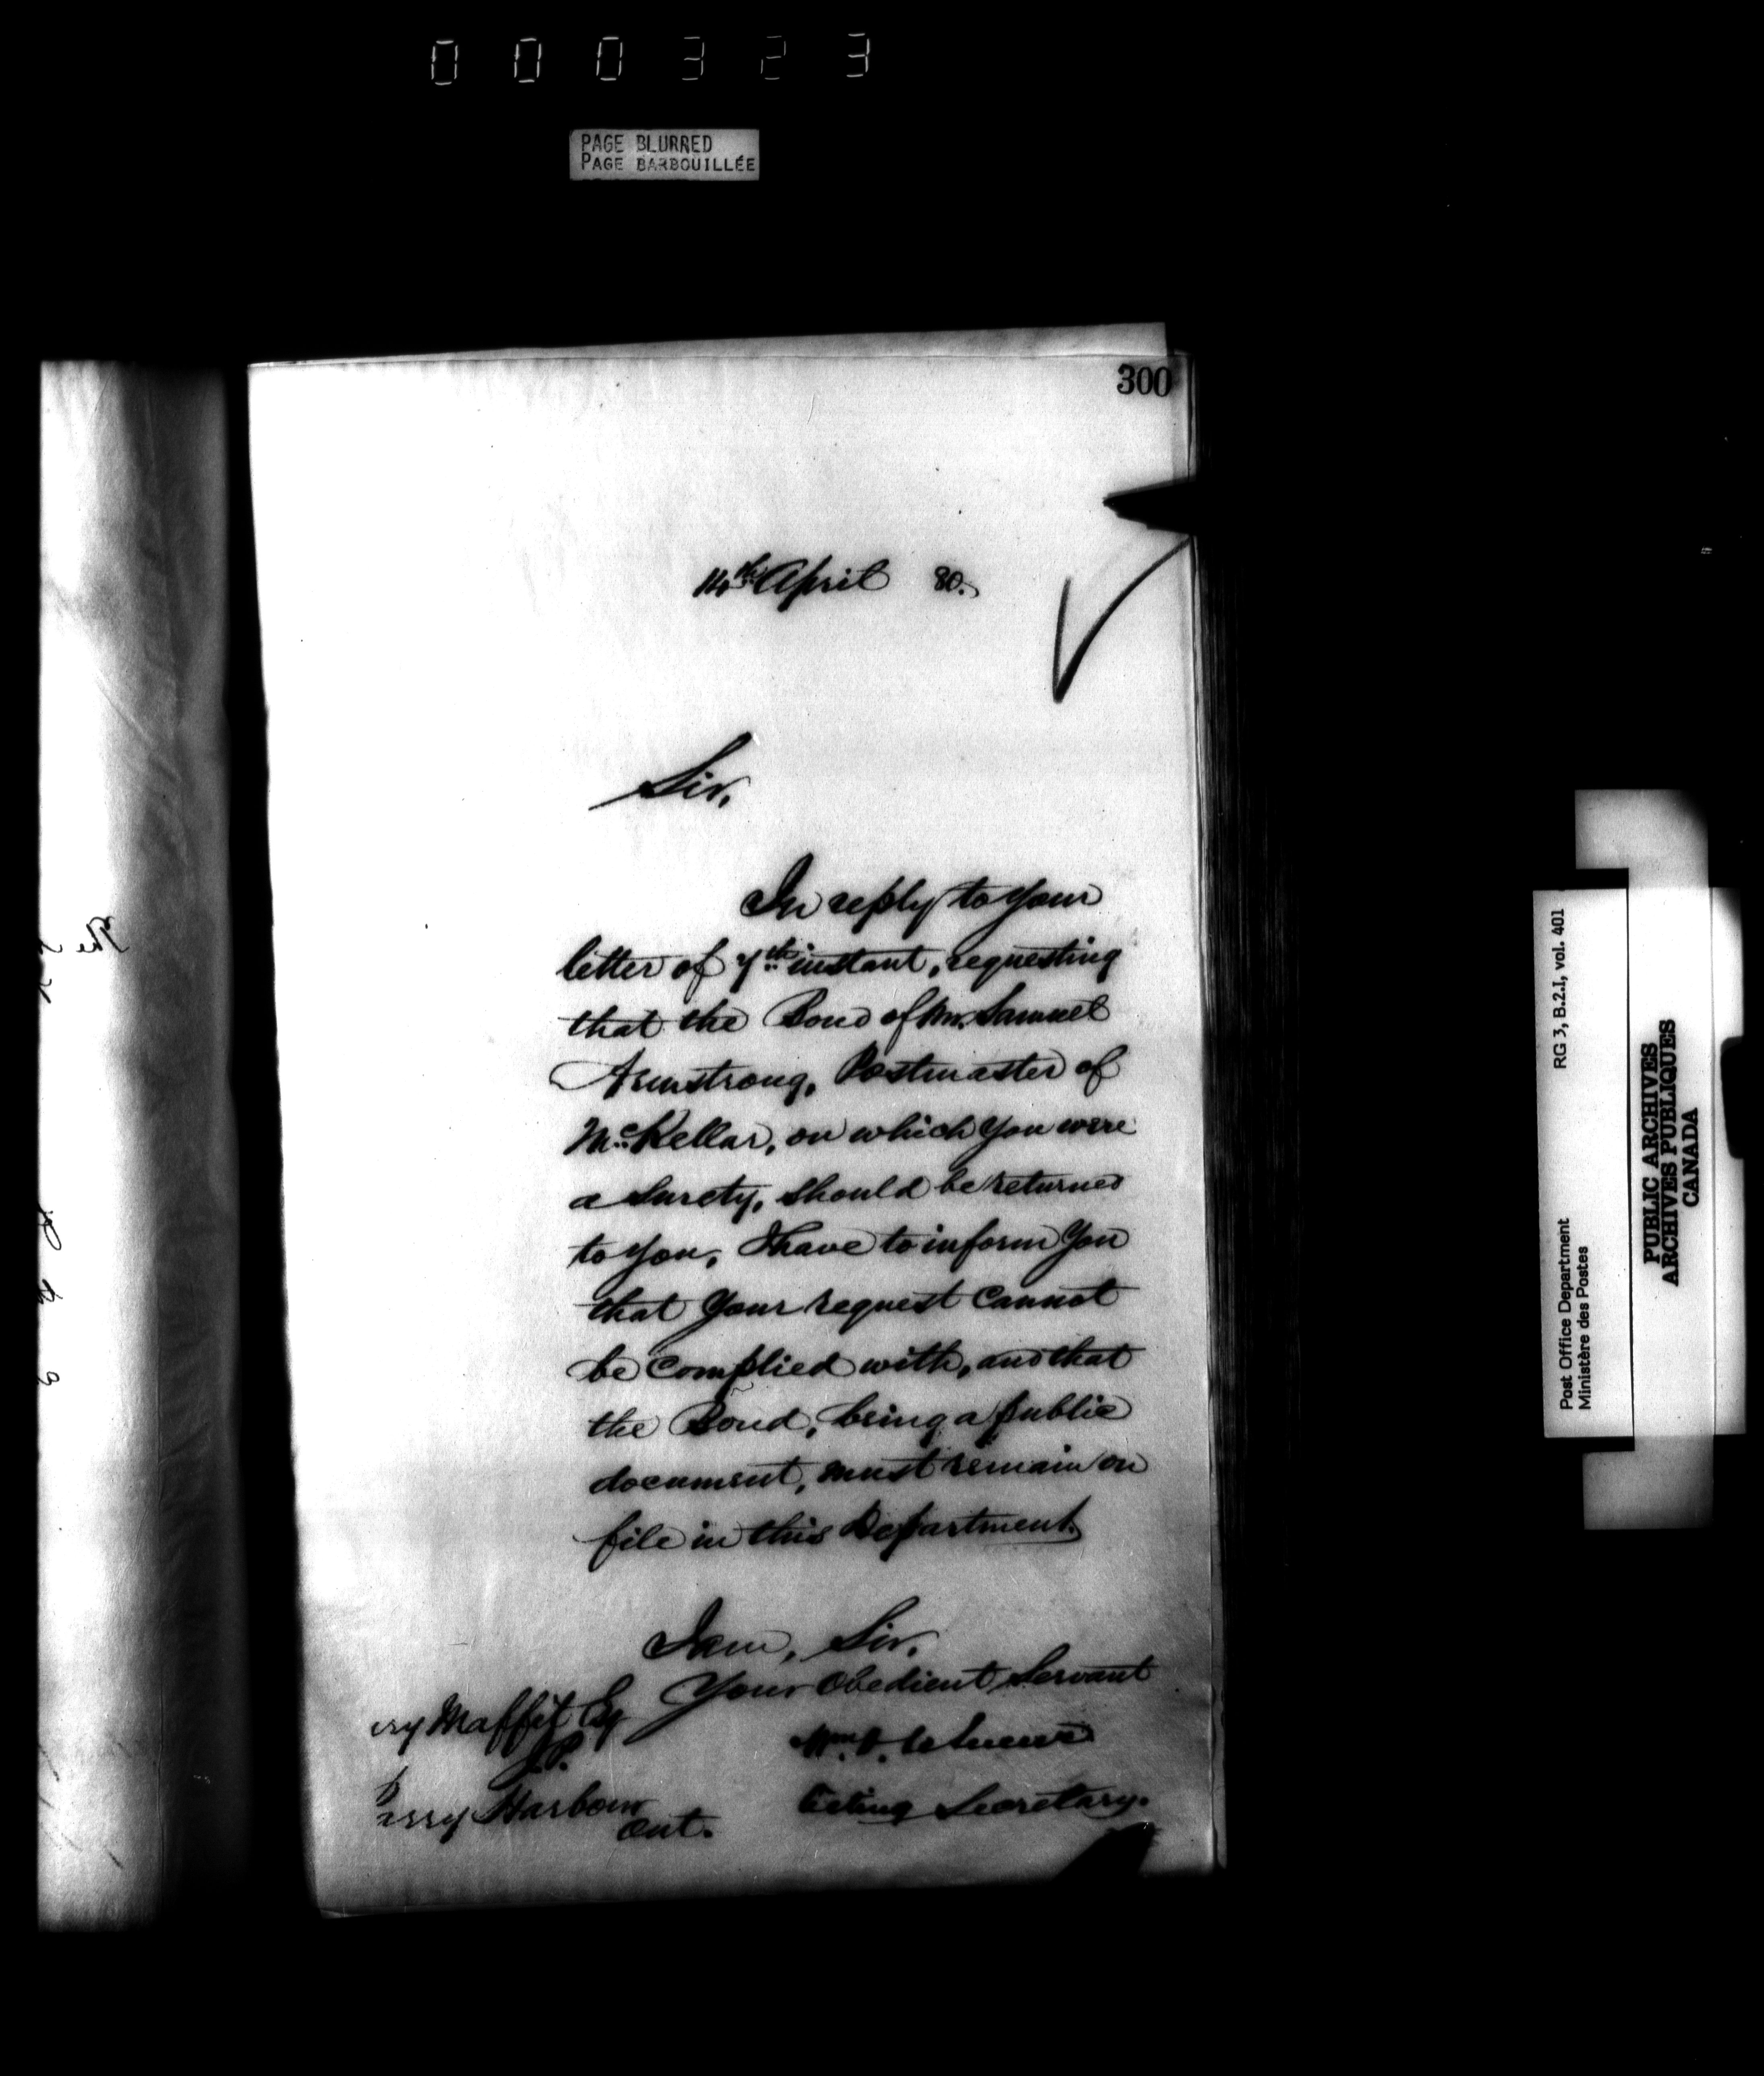 000323
PAGE BLURRED
PAGE BARBOUILLÉE
300
14th April 80.
Sir,
In reply to your
letter of 7th instant, requesting
that the Bond of Mr. Samuel
Armstrong, Postmaster of
McKellar, on which you were
a Surety, should be returned
to you, I have to inform you
that your request cannot
be complied with, and that
the Bond, being a public
document, must remain on
file in this Department.
I am, Sir,
Your Obedient Servant
ry Maffit Esq
J.P.
arry Harbour
Ont.
Wm. D. LeSueur
Acting Secretary.
The
RG 3, B.2.I, vol. 401
Post Office Department
Ministère des Postes
PUBLIC ARCHIVES
ARCHIVES PUBLIQUES
CANADA